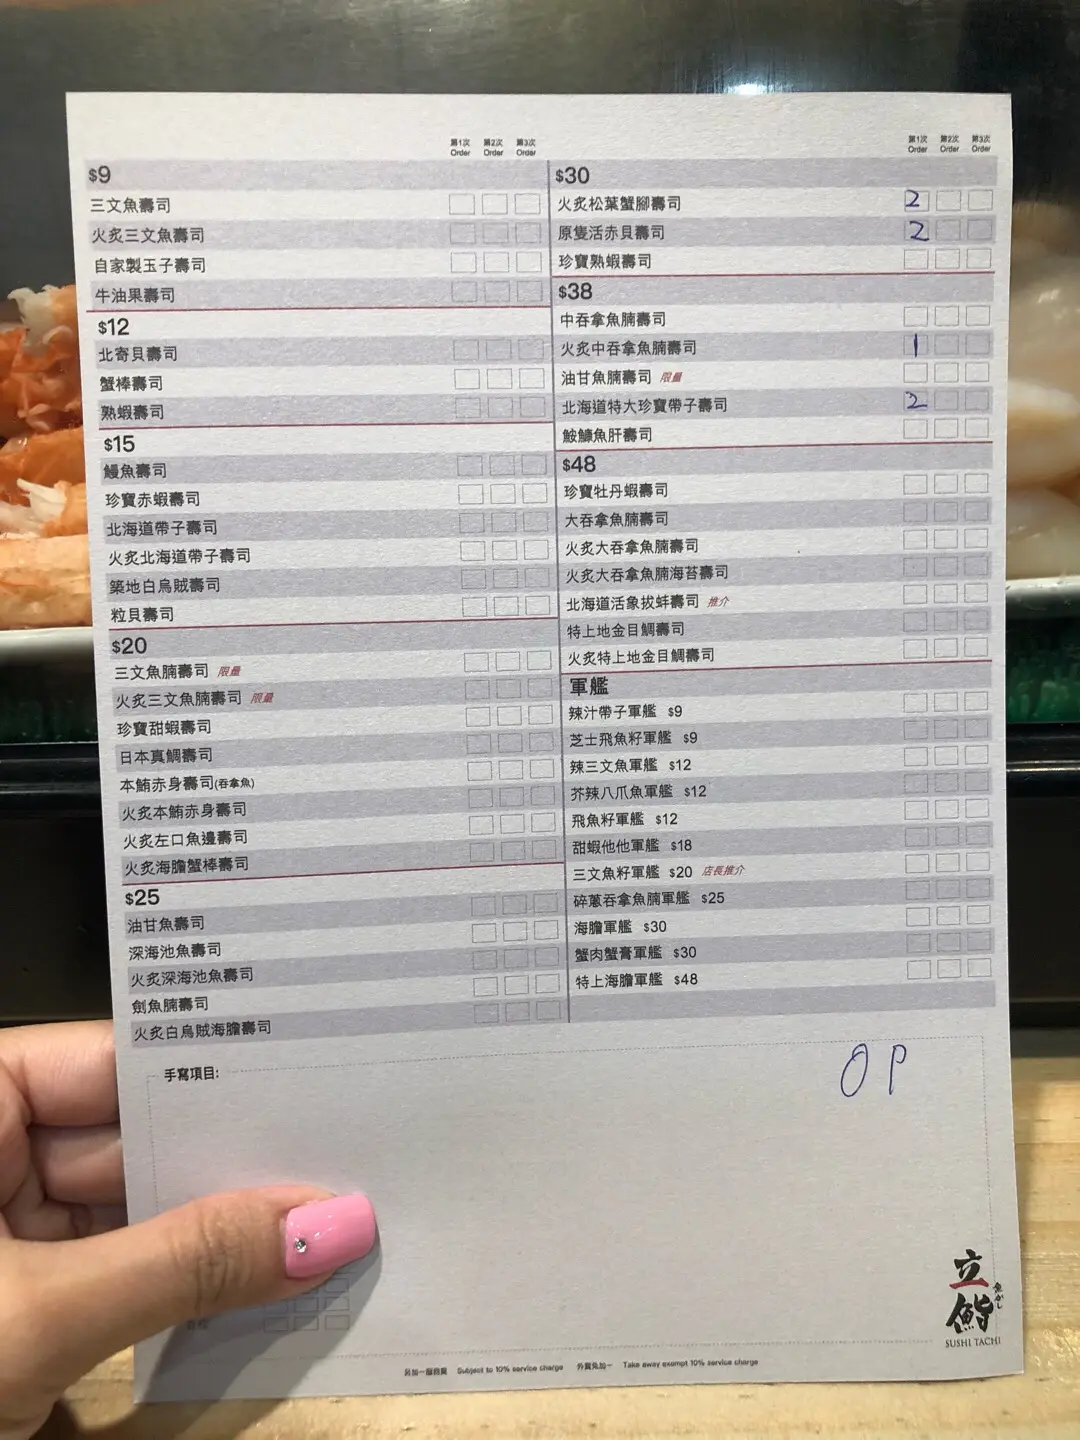 第1次 第2次 第3次
Order Order Order
$9
三文魚壽司
火炙三文魚壽司
自家製玉子壽司
牛油果壽司
$12
北寄貝壽司
蟹棒壽司
熟蝦壽司
$15
鰻魚壽司
珍寶赤蝦壽司
北海道帶子壽司
火炙北海道帶子壽司
築地白烏賊壽司
粒貝壽司
$20
三文魚腩壽司 限量
火炙三文魚腩壽司 限量
珍寶甜蝦壽司
日本真鯛壽司
本鮪赤身壽司(吞拿魚)
火炙本鮪赤身壽司
火炙左口魚邊壽司
火炙海膽蟹棒壽司
$25
油甘魚壽司
深海池魚壽司
火炙深海池魚壽司
劍魚腩壽司
火炙白烏賊海膽壽司
第1次 第2次 第3次
Order Order Order
$30
火炙松葉蟹腳壽司 2
原隻活赤貝壽司 2
珍寶熟蝦壽司
$38
中吞拿魚腩壽司
火炙中吞拿魚腩壽司 1
油甘魚腩壽司 限量
北海道特大珍寶帶子壽司 2
鮟鱇魚肝壽司
$48
珍寶牡丹蝦壽司
大吞拿魚腩壽司
火炙大吞拿魚腩壽司
火炙大吞拿魚腩海苔壽司
北海道活象拔蚌壽司 推介
特上地金目鯛壽司
火炙特上地金目鯛壽司
軍艦
辣汁帶子軍艦 $9
芝士飛魚籽軍艦 $9
辣三文魚軍艦 $12
芥辣八爪魚軍艦 $12
飛魚籽軍艦 $12
甜蝦他他軍艦 $18
三文魚籽軍艦 $20 店長推介
碎蔥吞拿魚腩軍艦 $25
海膽軍艦 $30
蟹肉蟹膏軍艦 $30
特上海膽軍艦 $48
手寫項目:
OP
立鮨
魚がし
SUSHI TACHI
另加一服務費 Subject to 10% service charge 外賣免加一 Take away exempt 10% service charge